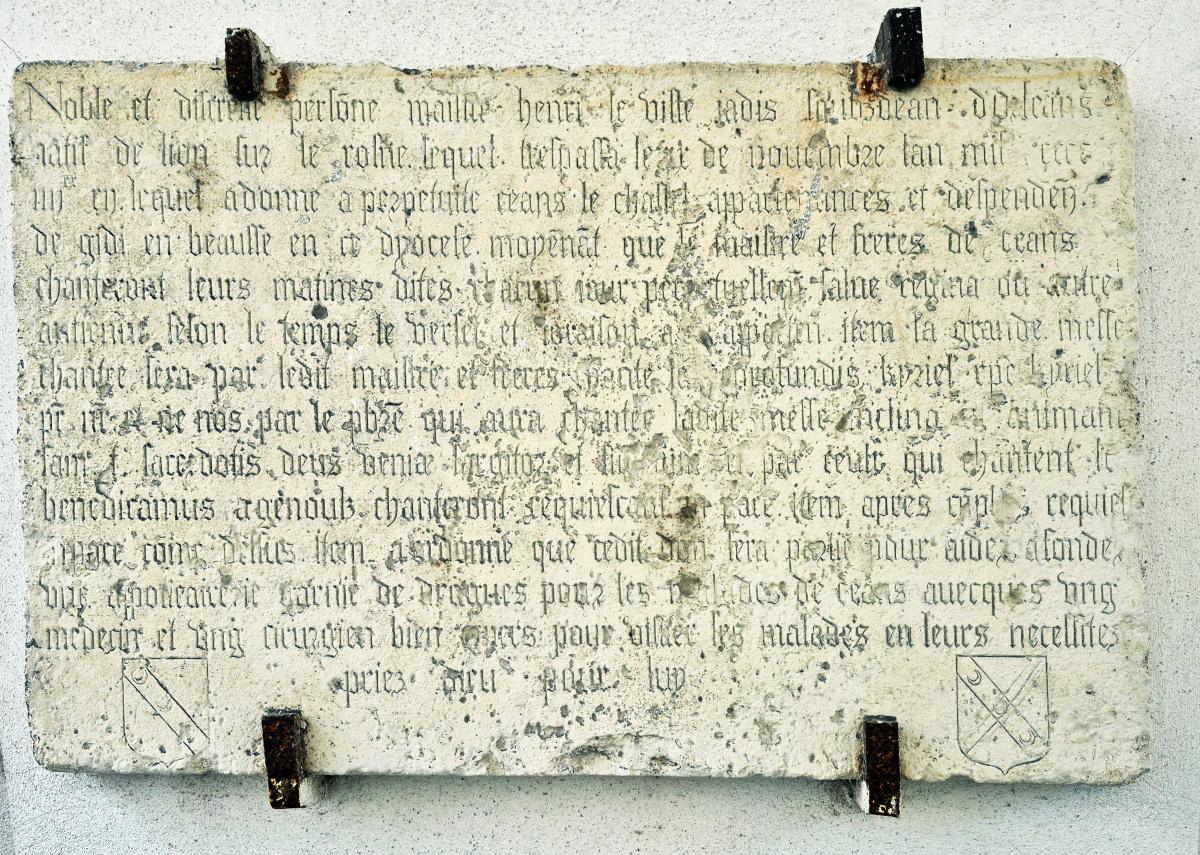 Noble et discrette persõne maistre henri le viste jadis soubzdean dorleans
natif de lion sur le rosne lequel trespassa le de nouembre lan mil cccc
iiij lequel a donne a perpetuite ceans le chastel appartenances et despendeñ
de gidi en beausse en ce dyocese moyenãt que le maistre et freres de ceans
chanteront leurs matines dites chacun iour perpetuellemẽt salue regina ou autre
antienne selon le temps le verset et loraison apparten item la grande messe
chantee sera par ledit maistre et freres profundis kyriel xpe kyriel
pr nr et ne nos par le pbrẽ qui aura chantee ladite messe inclina
fam sacerdotis deus venie largitor et par ceulx qui chantent le
benedicamus a genoulz chanteront requiescant in pace item apres cõpl requiesc
in pace cõme dessus Item a ordonne que cedit don sera partie pour aider a fonder
vne appoticairerie garnie de drogues pour les malades de ceans auecques vng
medecin et vng cirurgien bien expers pour visiter les malades en leurs necessites
priez dieu pour luy